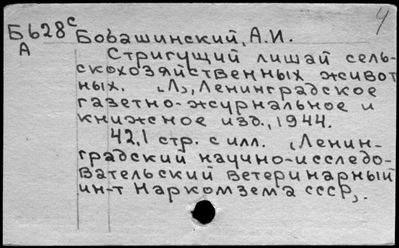 4
Б628с Бобашинский, А.И.
А
Стригущий лишай сель-
скохозяйственных живот
ных. [Л], Ленинградское
газетно-журнальное и
книжное изд., 1944.
42,1 стр. с илл. [Ленин-
градский научно-исследо-
вательский ветеринарный
ин-т Наркомзема СССР].